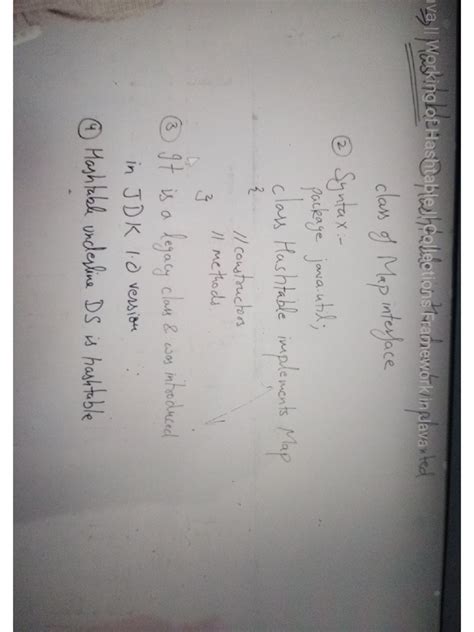 Java || Working of Hashtable || Collections Framework
class of Map interface
② Syntax:-
package java.util;
class Hashtable implements Map
{
//constructors
//methods
}
③ It is a legacy class & was introduced
in JDK 1.0 version
④ Hashtable underline DS is hashtable